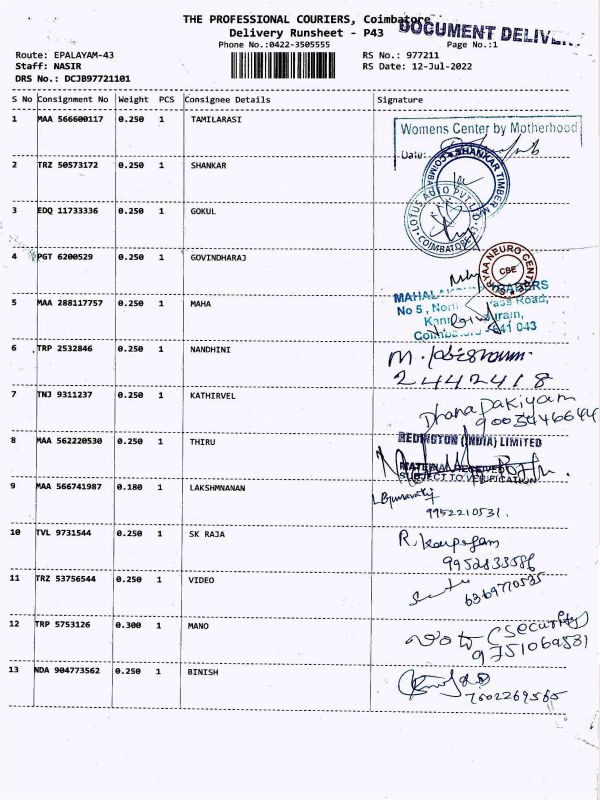 THE PROFESSIONAL COURIERS, Coimbatore
DOCUMENT DELIVE
Delivery Runsheet - P43
Phone No.:0422-3505555
Page No.:1
Route: EPALAYAM-43
RS No.: 977211
Staff: NASIR
RS Date: 12-Jul-2022
DRS No.: DCJB97721101
S No Consignment No Weight PCS Consignee Details Signature
1 MAA 566600117 0.250 1 TAMILARASI
Womens Center by Motherhood
Date:
2 TRZ 50573172 0.250 1 SHANKAR
SHANKAR TIMBER
3 EDQ 11733336 0.250 1 GOKUL
LOTUS AUTO PVT LTD
COIMBATORE
4 PGT 6200529 0.250 1 GOVINDHARAJ
NEURO
CBE
5 MAA 288117757 0.250 1 MAHA
No 5,
Road,
641 043
6 TRP 2532846 0.250 1 NANDHINI
2442418
7 TNJ 9311237 0.250 1 KATHIRVEL
Dhana pakiyam
9003446644
8 MAA 562220530 0.250 1 THIRU
REDINGTON (INDIA) LIMITED
MATERIAL RECEIVED
SUBJECT TO VERIFICATION
9 MAA 566741987 0.180 1 LAKSHMNANAN
9952210531.
10 TVL 9731544 0.250 1 SK RAJA
9952833586
11 TRZ 53756544 0.250 1 VIDEO
6369770535
12 TRP 5753126 0.300 1 MANO
security
9751069581
13 NDA 904773562 0.250 1 BINISH
7502269565